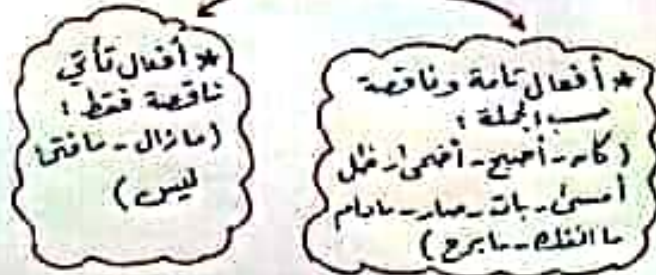 * أفعال تامة وناقصة
حسب الجملة :
( كان - أصبح - أضحى - ظل
أمسى - بات - صار - مادام
ما انفك - ما برح )
* أفعال تأتي
ناقصة فقط :
( مازال - مافتئ
ليس )